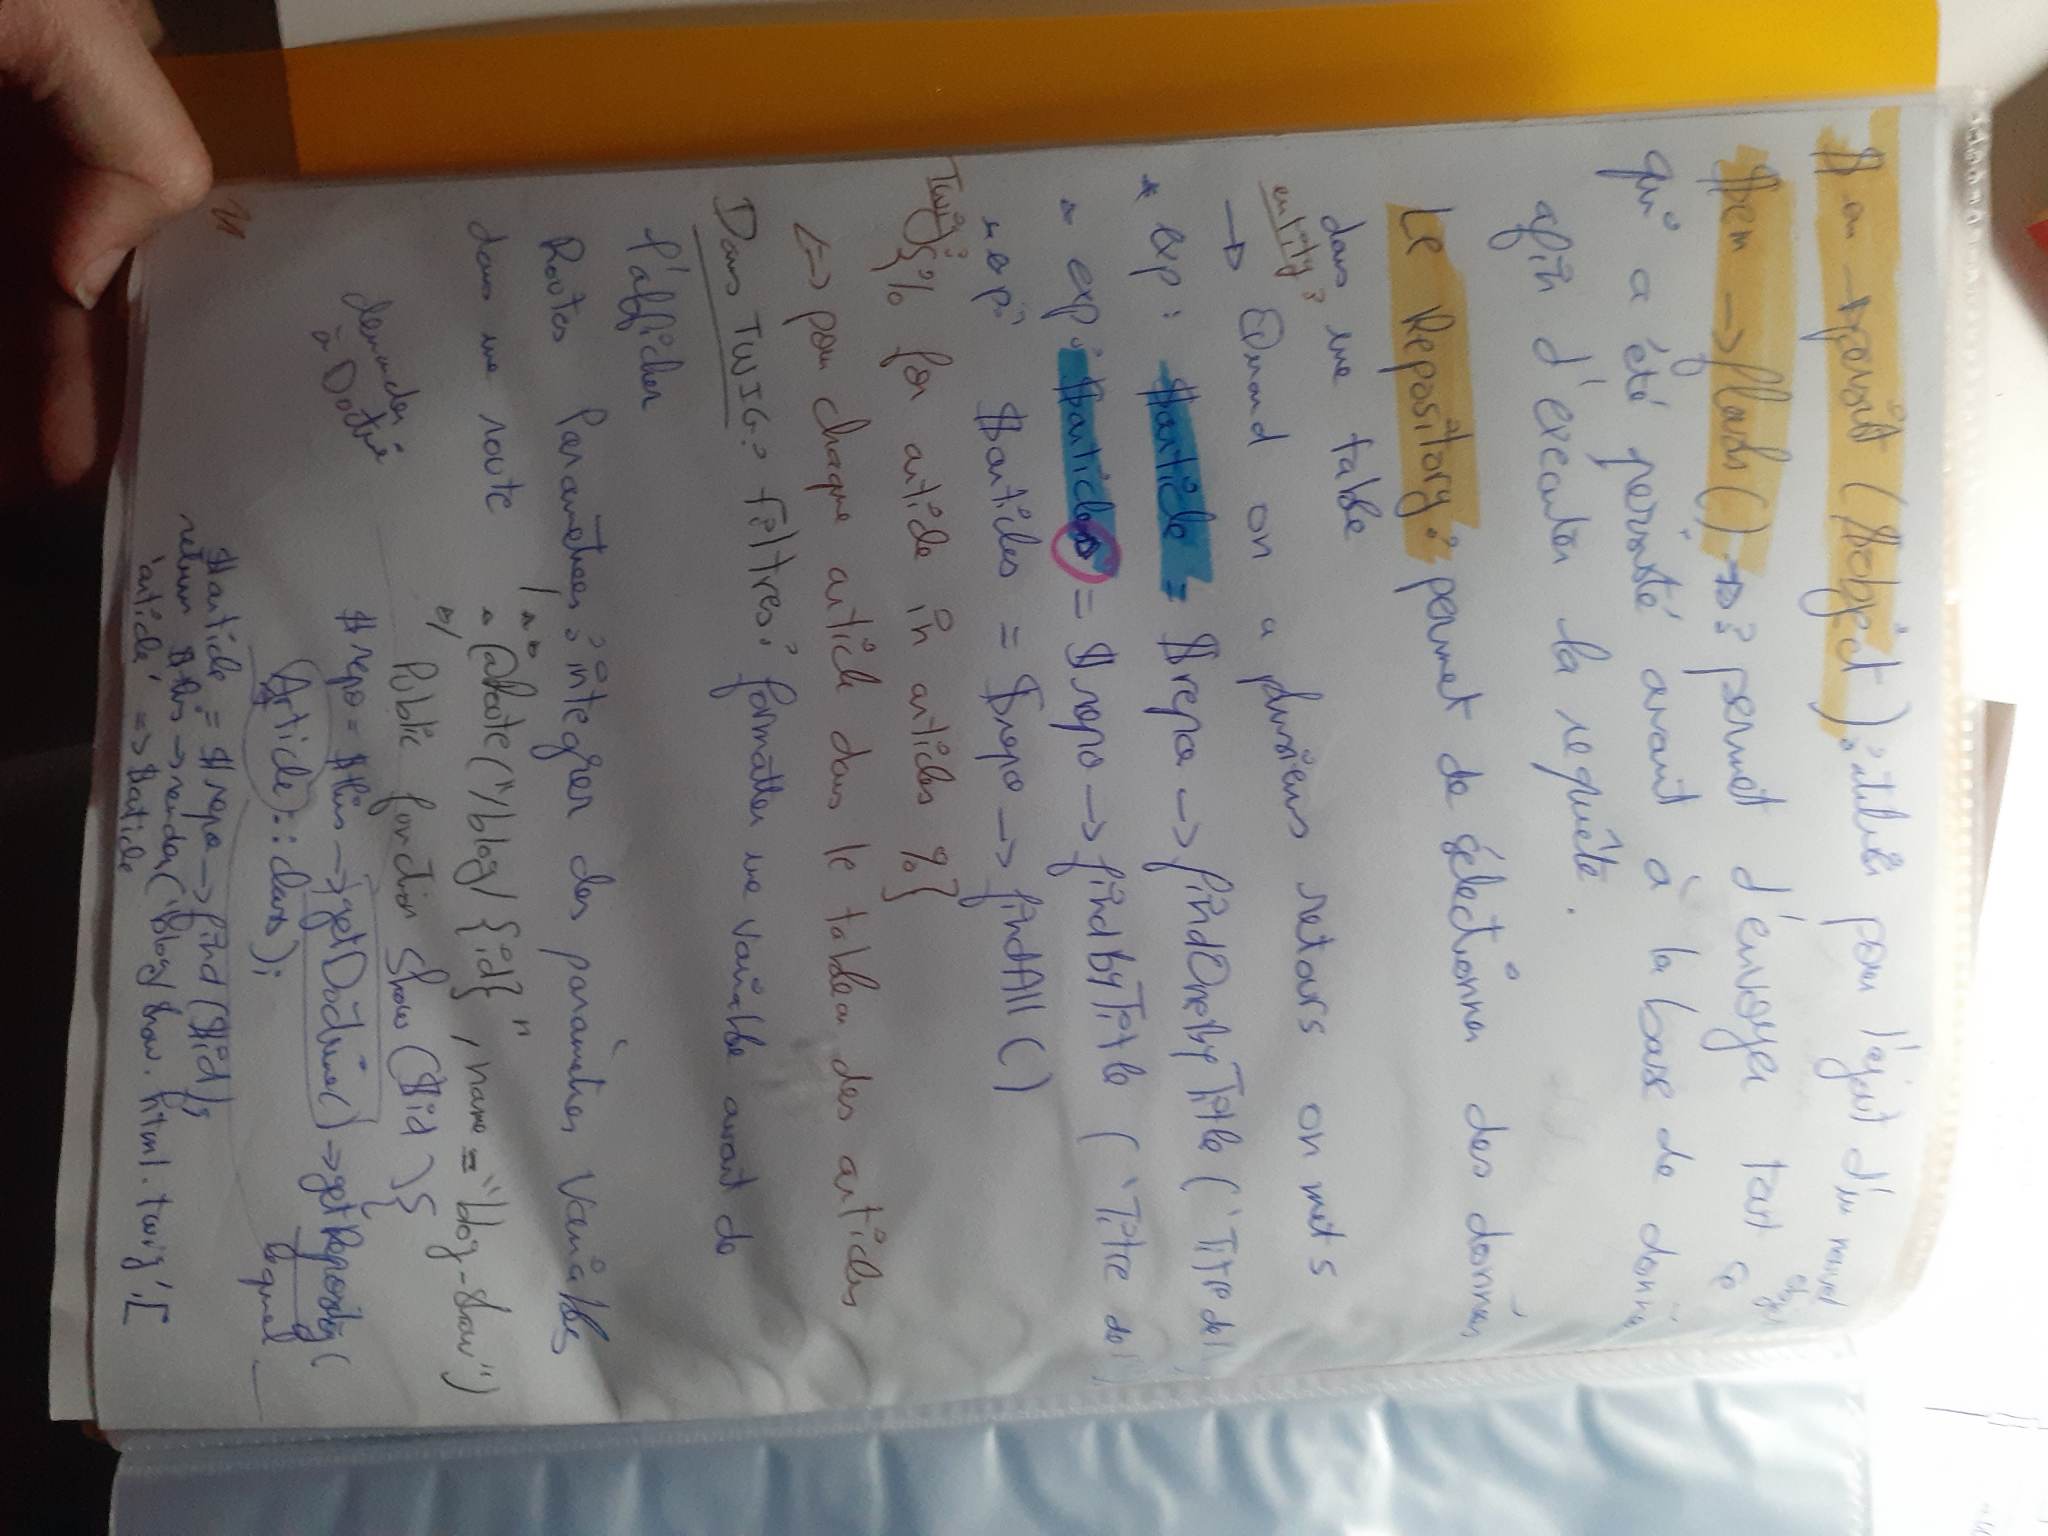 $em → persist ($object) : utilisé pour l'ajout d'un nouvel objet
$em → flush() → : permet d'envoyer tout ce
qui a été persisté avant à la base de données
afin d'exécuter la requête.
Le Repository : permet de sélectionner des données
dans une table
entity :
→ Quand on a plusieurs retours on met s
* exp : $article = $repo → findOneByTitle ('Titre de l'
* exp : $articles = $repo → findByTitle ('Titre de l'
* exp : $articles = $repo → findAll ()
Twig : {% for article in articles %}
<=> pour chaque article dans le tableau des articles
Dans TWIG : filtres : formatter une variable avant de
l'afficher
Routes Paramétrées : intégrer des paramètres variables
dans une route
/**
* @Route("/blog/{id}", name="blog_show")
*/
Public function show ($id) {
demander
à Doctrine
$repo = $this → getDoctrine() → getRepository(
Article::class); lequel
$article = $repo → find ($id);
return $this → render('blog/show.html.twig',[
'article' => $article